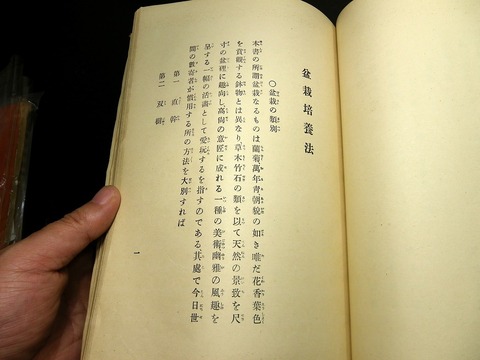 盆栽培養法
〇盆栽の類別
本書の所謂盆栽なるものは蘭菊萬年靑朝貌の如き唯だ花香葉色
を賞觀する鉢物とは異なり草木竹石の類を以て天然の景致を尺
寸の盆裡に趣向し高尙の意匠に成れる一種の美術幽雅の風趣を
呈する一幅の活畵として愛玩するを指すのである其處で今日世
間の數寄者が慣用する所の方法を大別すれば
第一 直幹
第二 双樹
一